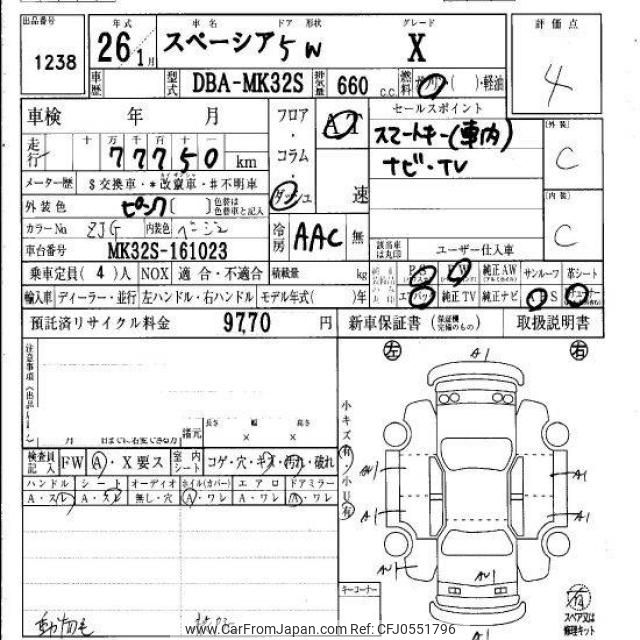 出品番号 年式 車名 ドア 形状 グレード 評価点
1238 26 1月 スペーシア 5W X 4
車歴 型式 DBA-MK32S 排気量 660 c.c. 燃料 ( )・軽油
車検 年 月 フロア・コラム・ダッシュ AT 速 セールスポイント
走行 十 万 千 百 十 一
77750 km
スマートキー(車内)
ナビ・TV
[外装] C
メーター歴 $交換車・*改竄車・#不明車
外装色 ピンク [ ] 色替は色替車と記入
[内装] C
カラーNo ZJG 内装色 ベージュ
冷房 AAC 無
車台番号 MK32S-161023 該当車は丸印 ユーザー仕入車
乗車定員 (4)人 NOX 適合・不適合 積載量 kg PS PW 純正AW サンルーフ 革シート
輸入車 ディーラー・並行 左ハンドル・右ハンドル モデル年式( )年 エアバッグ 純正TV 純正ナビ ABS
預託済リサイクル料金 9770 円 新車保証書 (保証欄完備のもの) 取扱説明書
注意事項 左 A1 右
長さ 幅 高さ
諸元 × ×
小キズ(有)・小U(有)
検査員記入 FW A・X要ス 室内シート コゲ・穴・キズ・汚れ・破れ
ハンドル シート オーディオ ホイル(カバー) エアロ ドアミラー
A・スレ A・スレ 無し・穴 A・ワレ A・ワレ A・ワレ
AU1 A1
A1 A1
AU1 AU1
キーコーナー
スペア又は修理キット
動物毛
A1
www.CarFromJapan.com Ref: CFJ0551796